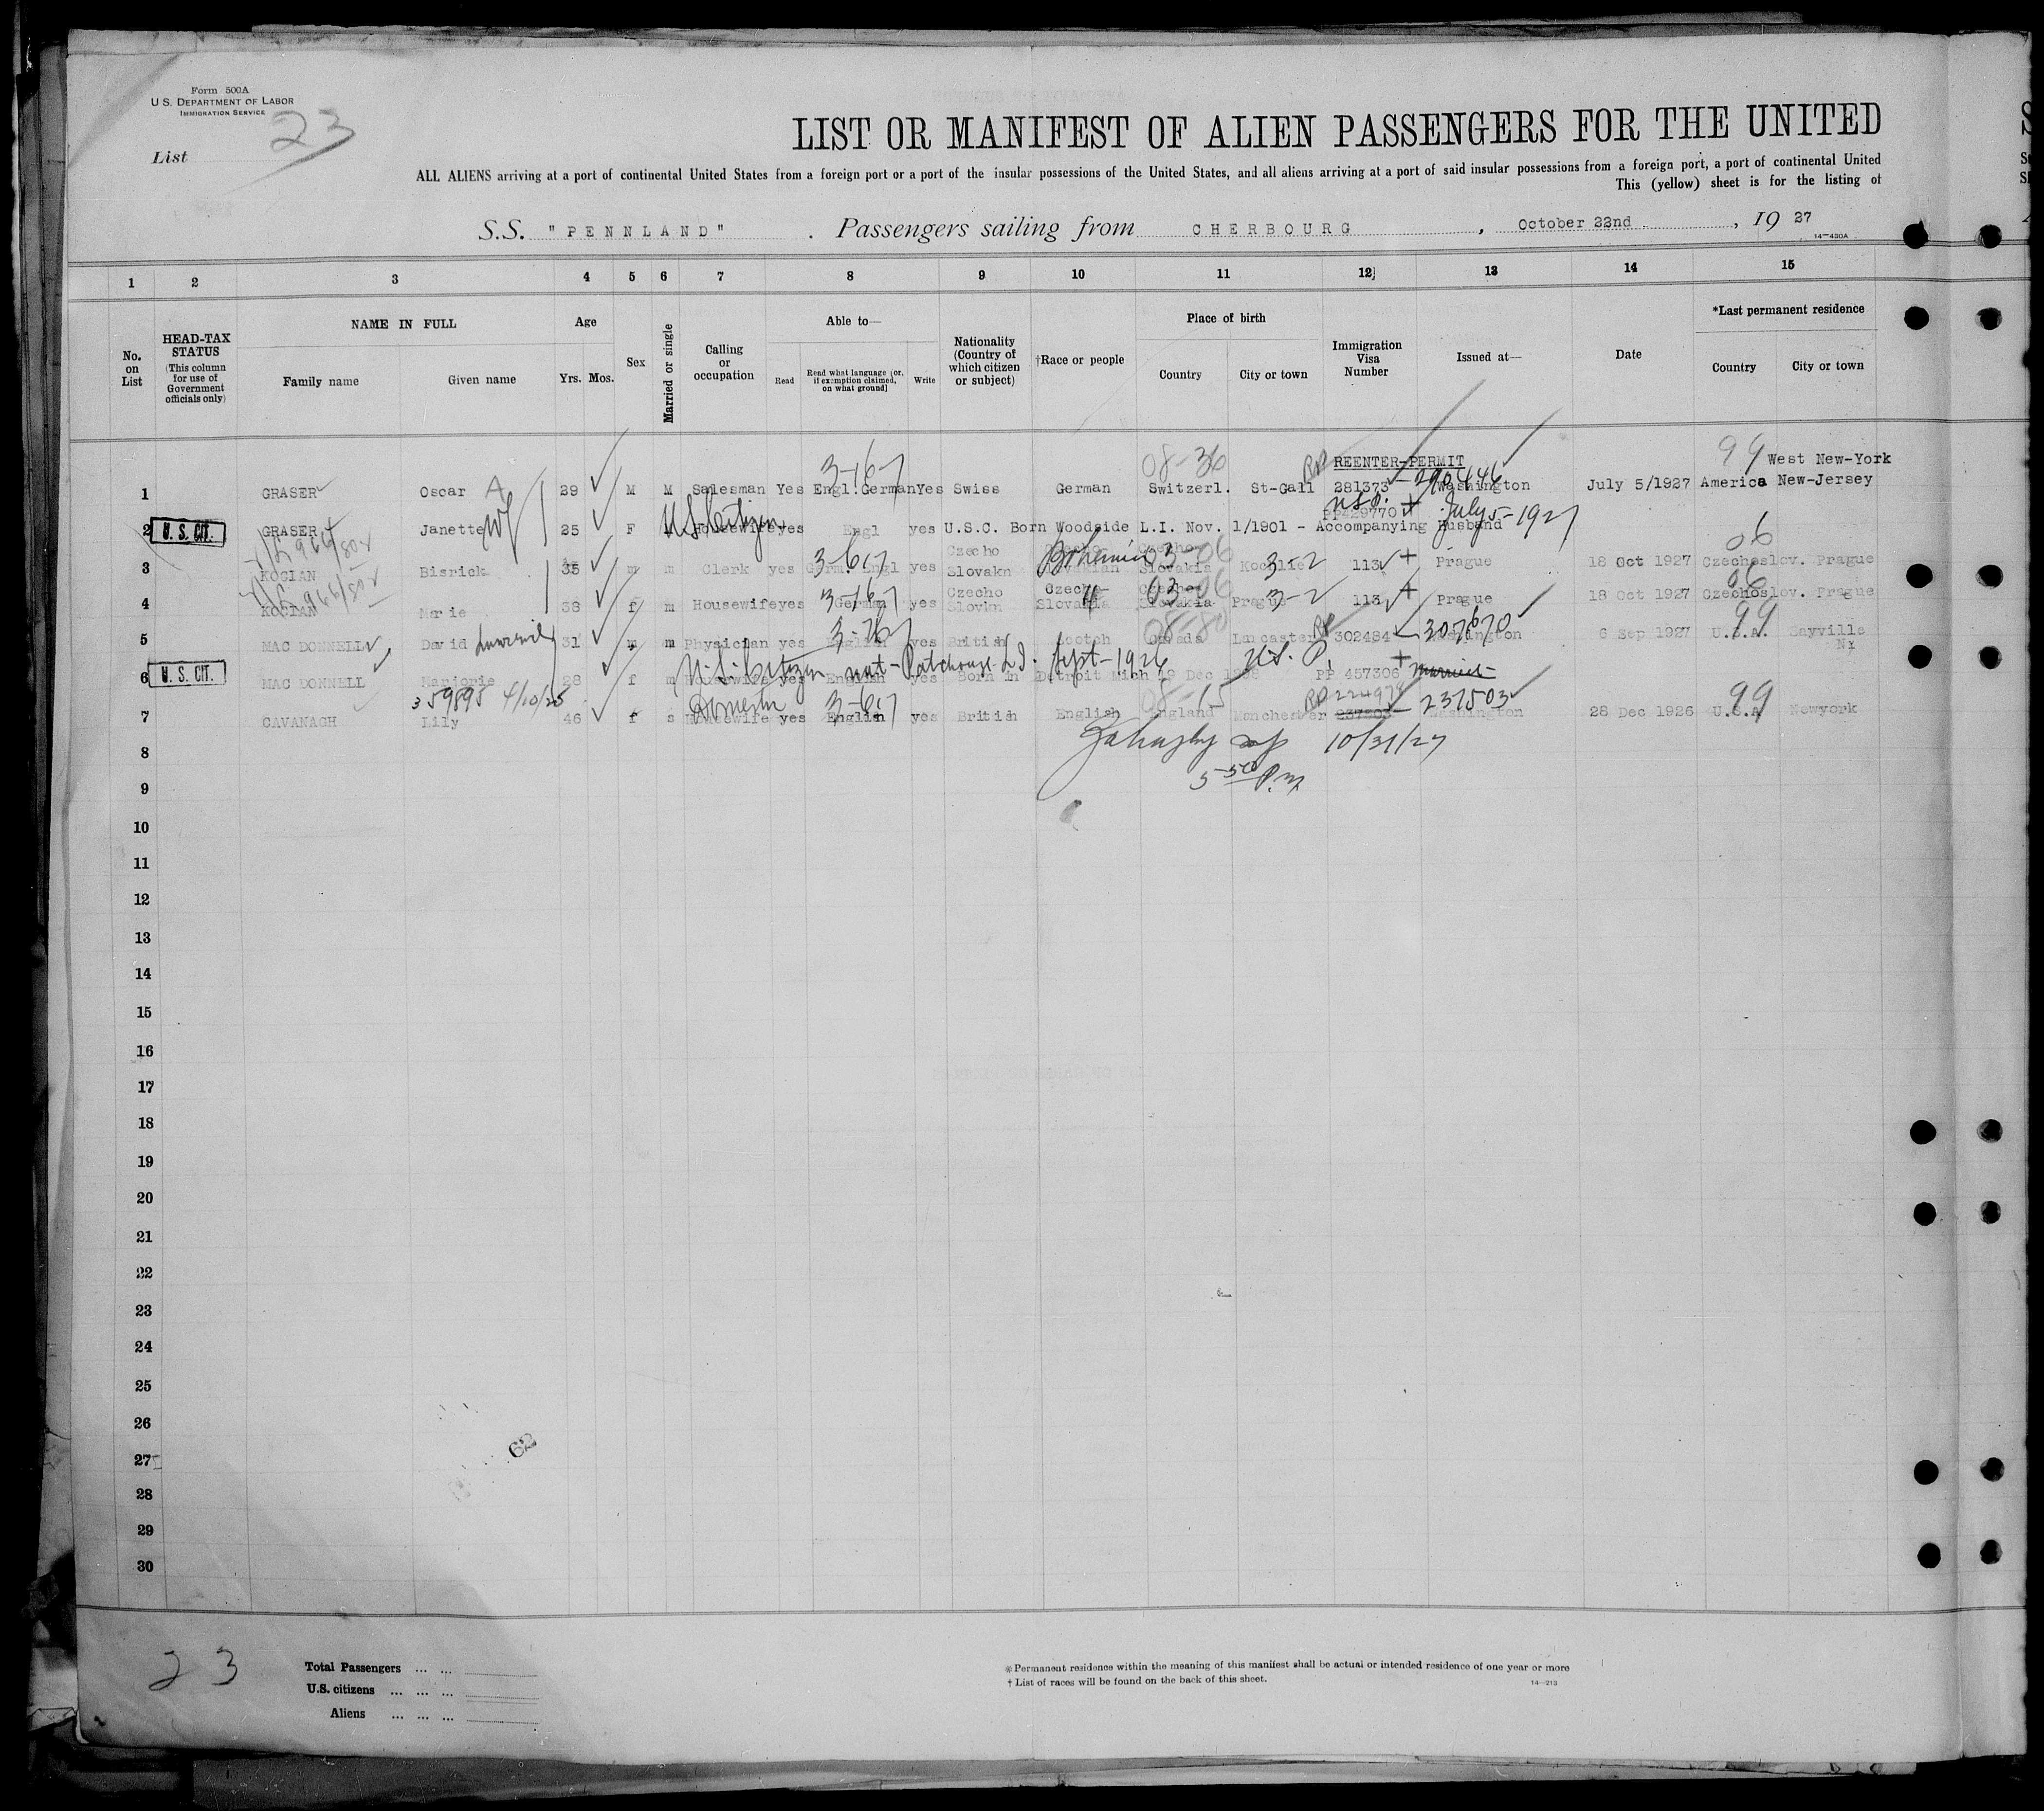 Form 500A
U S. DEPARTMENT OF LABOR
IMMIGRATION SERVICE
List 23
LIST OR MANIFEST OF ALIEN PASSENGERS FOR THE UNITED
ALL ALIENS arriving at a port of continental United States from a foreign port or a port of the insular possessions of the United States, and all aliens arriving at a port of said insular possessions from a foreign port, a port of continental United
This (yellow) sheet is for the listing of
S.S. "PENNLAND" . Passengers sailing from CHERBOURG , October 22nd , 19 27
14—430A
1 2 3 4 5 6 7 8 9 10 11 12 13 14 15
No. on List
HEAD-TAX STATUS (This column for use of Government officials only)
NAME IN FULL
Family name Given name
Age
Yrs. Mos.
Sex
Married or single
Calling or occupation
Able to—
Read
Read what language [or, if exemption claimed, on what ground]
Write
Nationality (Country of which citizen or subject)
†Race or people
Place of birth
Country City or town
Immigration Visa Number
Issued at—
Date
*Last permanent residence
Country City or town
3-16-7 08-36 RP REENTER-PERMIT 99 West New-York
1 GRASER Oscar A 29 M M Salesman Yes Engl.German Yes Swiss German Switzerl. St-Gall 281373 - 290446 Washington July 5/1927 America New-Jersey
U.S.P. PP429770
2 U. S. CIT. GRASER Janette Wf 25 F M US Citizen Housewife yes Engl yes U.S.C. Born Woodside L.I. Nov. 1/1901 - Accompanying Husband July 5-1927
3 KOCIAN Bisrick 35 m m Clerk yes Germ. Engl yes Czecho Slovakn Bohemian 03-06 Slovakia 3-2 113 Prague 18 Oct 1927 Czechoslov. Prague 06
4 KOCIAN Marie 38 f m Housewife yes German 3-16-7 yes Czecho Slovkn Czecho- Slovakia " 03-06 Slovakia Prague 3-2 113 Prague 18 Oct 1927 Czechoslov. Prague 06
5 MAC DONNELL David 31 m m Physician yes English yes British Scotch Canada 08-80 Lancaster RP 302484 - 307670 Washington 6 Sep 1927 U.S.A. 99 Sayville NY
U.S. Citizen nat - Patchogue L.I. Sept-1926 U.S. P.
6 U. S. CIT. MAC DONNELL Marjorie 28 f m Housewife yes English yes Born in Detroit Mich 19 Dec PP 457306 married
359895 4/10/25 Domestic 3-6-7 08-15 RP 99
7 CAVANAGH Lily 46 f s Housewife yes English yes British English England Manchester - 237503 Washington 28 Dec 1926 U.S.A Newyork
8 10/31/27
9 5 50 P.M.
10
11
12
13
14
15
16
17
18
19
20
21
22
23
24
25
26
27
62
28
29
30
23
Total Passengers ... ...
U.S. citizens ... ... ...
Aliens ... ... ...
*Permanent residence within the meaning of this manifest shall be actual or intended residence of one year or more
† List of races will be found on the back of this sheet.
14—213